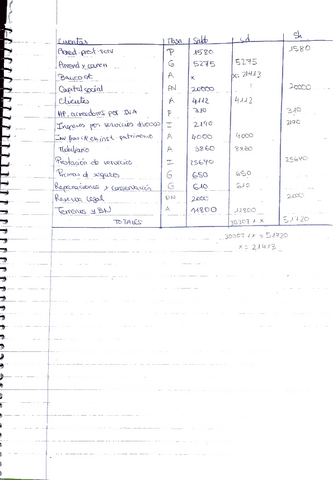 Cuentas Masa Saldo sd sh
Acreed. prest. serv P 1580 1580
Arrend y canon G 5275 5275
Banco A x x: 21413
Capital social PN 20000 20000
Clientes A 4112 4112
HP, acreedora por IVA P 310 310
Ingresos por servicios diversos I 2190 2190
A 4000 4000
Mobiliario A 3860 3860
Prestación de servicios I 25640 25640
Primas de seguros G 650 650
Reparaciones y conservación G 610 610
Reserva legal 2000 2000
Terrenos y BN A 11800 11800
TOTALES 30307+x 51720
30307+x = 51720
x = 21413